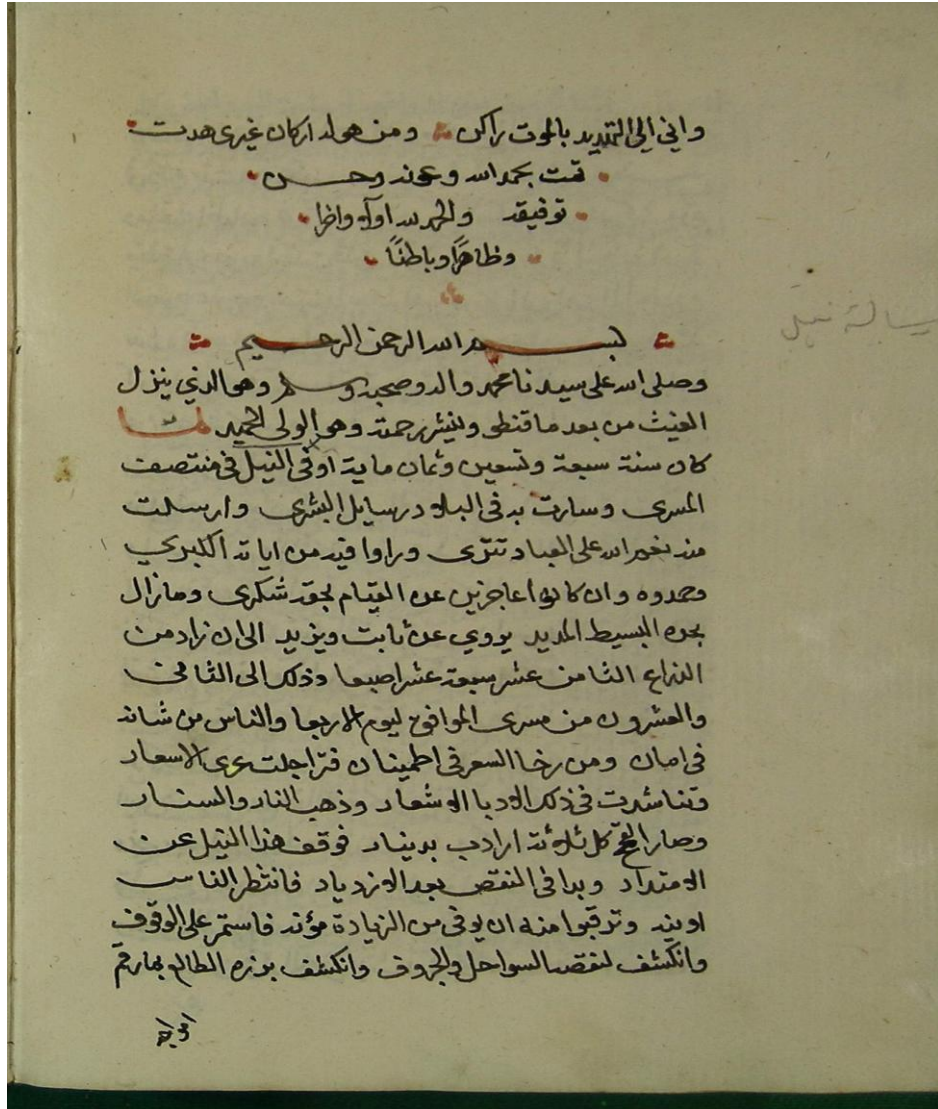 واني الي التهديد بالموت راكن ومن هوله اركان غيري هدت
تمت بحمد الله وعونه وحسن
توفيقه والحمد لله اولا واخرا
وظاهرًا وباطنًا
بسم الله الرحمن الرحيم
وصلى الله على سيدنا محمد واله وصحبه وسلم وهو الذي ينزل
الغيث من بعد ما قنطو وينشر رحمته وهو الولي الحميد لما
كان سنة سبعة وتسعين وثمان ماية اوفى النيل في منتصف
المسرى وسارت به في البلاد رسايل البشرى وارسلت
منه نعم الله على العباد تترى وراوا فيه من اياته الكبري
وحمدوه وان كانوا عاجزين عن القيام بحقه شكرى ومازال
بحره البسيط المديد يروي عن ثابت ويزيد الى ان زاد من
الذراع الثامن عشر سبعة عشر اصبعا وذلك الى الثاني
والعشرون من مسرى الموافق ليوم الاربعا والناس من شانه
في امان ومن رخا السعر في اطمينان قد الاسعار
وتناشدت في ذلك الادبا الاشعار وذهب النار والستار
وصار القمح كل ثلاثة ارادب بدينار فوقف هذا النيل عن
الامتداد وبدا في النقص بعد الازدياد فانتظر الناس
اوبته وترقبوا منه ان يوفى من الزيادة فاستمر على الوقوف
وانكشف لنقصه السواحل والجروف وانكشف الطالع بما رقم
رسالة نيل